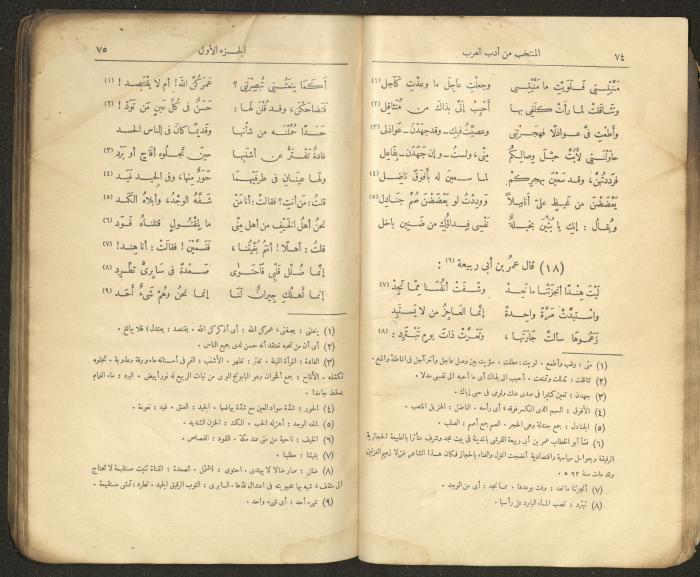 ٧٤
المنتخب من أدب العرب
مَنَّيْتِنِي فَلَوَيْتِ مَا مَنَّيْتِنِي وجعلتِ عاجلَ ما وعدتِ كآجلِ (١)
وتثاقلت لما رأت كلفي بها أَحْبِبْ إلىَّ بذاك من متثاقل (٢)
وأطعتِ فىَّ عواذلا فهجرتِني وعصيتُ فيكِ ـ وقد جهدن ـ عواذلى (٣)
حاولنني لأبتَّ حبلَ وصالكم منى، ولستُ ـ وإن جهدن ـ بفاعل
فرددتهن، وقد سعين بهجركم لما سعين له بأفوق ناضل (٤)
يعضضن من غيظ علىَّ أناملا ووددتُ لو يعضضن صم جنادل (٥)
ويقال: إنك يا بثين بخيلة نفسى فداؤك من ضنين باخل
(١٨) قال عمر بن أبى ربيعة (٦) :
ليت هندا أنجزتنا ما تعد وشفت أنفسنا مما تجد (٧)
واستبدت مرة واحدة إنما العاجز من لا يستبد
زعموها سألت جارتها، وتعرت ذات يوم تبترد: (٨)
(١) منى : رغب وأطمع . لويت : مطلت . سويت بين وصل عاجل وآخر آجل فى المماطلة والمنع .
(٢)
(٣) جهدن : تعبن كثيرا فى
(٤) الأفوق : السهم الذى انكسر فوقه ، أى رأسه . الناضل :
(٥) الجنادل : جمع جندلة وهى الحجر . الصم جمع أصم : الصلب .
(٦) نشأ أبو الخطاب عمر بن أبى ربيعة القرشى بالمدينة فى بيت مجد وشرف متأثرا بالطبيعة الحجازية
الرقيقة وبعوامل سياسية واقتصادية أنضجت الغزل والغناء بالحجاز فكان هذا الشاعر غزلا زعيم الغزلين
وقد مات سنة ٩٣ هـ .
(٧) أنجزتنا ما تعد : وفت بوعدها . مما تجد : أى من الوجد .
(٨) تبترد : تصب الماء البارد على رأسها .
الجزء الأول
٧٥
أكما ينعتنى تبصرننى ؟ عمركن الله ! أم لا يقتصد ! (١)
فتضاحكن، وقد قلن لها : حسن فى كل عين من تود ! (٢)
حسدا حملنه من شأنها وقديما كان فى الناس الحسد
غادة تفتر عن أشنبها حين تجلوه أقاح أو برد (٣)
ولها عينان فى طرفيهما حور منها، وفى الجيد غيد (٤)
قلت : من أنت ؟ فقالت : أنا من شفه الوجد، وأبلاه الكمد (٥)
نحن أهل الخيف من أهل منى ما لمقتول قتلناه قود (٦)
قلت : أهلا ! أنتم بغيتنا، فتسمين ! فقالت : أنا هند ! (٧)
إنما ضلل قلبى فاحتوى صعدة فى سابرى تطرد (٨)
إنما أهلك جيران لنا إنما نحن وهم شىء أحد (٩)
(١) ينعتنى : يصفنى ، عمركن الله : أى أذكركن الله . يقتصد : يعتدل؛ فلا يبالغ .
(٢) أى أن من تحبه تعتقد أنه حسن لدى جميع الناس .
(٣) الغادة : المرأة اللينة . تفتر : تظهر . الأشنب : الفم فى أسنانه ماء ورقة وعذوبة . تجلوه
تكشفه . الأقاح : جمع أقحوان وهو البابونج البرى من نبات الربيع له نور أبيض . البرد : ماء الغمام
يسقط جامدا .
(٤) الحور : شدة سواد العين مع شدة بياضها . الجيد : العنق . غيد : نعومة .
(٥) شفه الوجد : أهزله الحب . الكمد : الحزن الشديد .
(٦) الخيف : ناحية من منى عند مكة . القود : القصاص .
(٧) بغيتنا : مطلبنا .
(٨) ضلل : صار ضالا لا يهتدى . احتوى : اشتمل . الصعدة : القناة تنبت مستقيمة لا تحتاج
الى مثقف، شبه بها محبوبته فى اعتدال قدها . السابرى : الثوب الرقيق الجيد . تطرد : تمشى مستقيمة .
(٩) شىء أحد : أى شىء واحد .